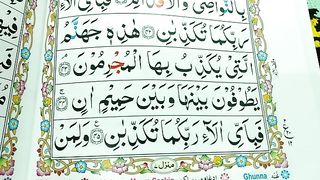 بِالنَّوَاصِیْ وَالْاَقْدَامِ فَبِاَیِّ اٰلَآءِ
رَبِّكُمَا تُكَذِّبٰنِ ﴿۴۲﴾ هٰذِهٖ جَهَنَّمُ
الَّتِیْ یُكَذِّبُ بِهَا الْمُجْرِمُوْنَ ﴿۴۳﴾
یَطُوْفُوْنَ بَیْنَهَا وَبَیْنَ حَمِیْمٍ اٰنٍ ﴿۴۴﴾
فَبِاَیِّ اٰلَآءِ رَبِّكُمَا تُكَذِّبٰنِ ﴿۴۵﴾ وَلِمَنْ
منزل ۷
Ghunna غنہ